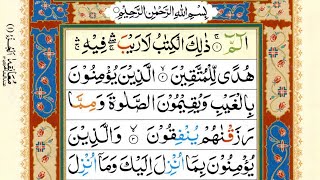 بِسْمِ اللّٰهِ الرَّحْمٰنِ الرَّحِيْمِ
الٓمّٓ ۚ ذٰلِكَ الْكِتٰبُ لَا رَيْبَ ۛ فِيْهِ ۛ
هُدًى لِّلْمُتَّقِيْنَ ۙ الَّذِيْنَ يُؤْمِنُوْنَ
بِالْغَيْبِ وَيُقِيْمُوْنَ الصَّلٰوةَ وَمِمَّا
رَزَقْنٰهُمْ يُنْفِقُوْنَ ۙ وَالَّذِيْنَ
يُؤْمِنُوْنَ بِمَآ اُنْزِلَ اِلَيْكَ وَمَآ اُنْزِلَ